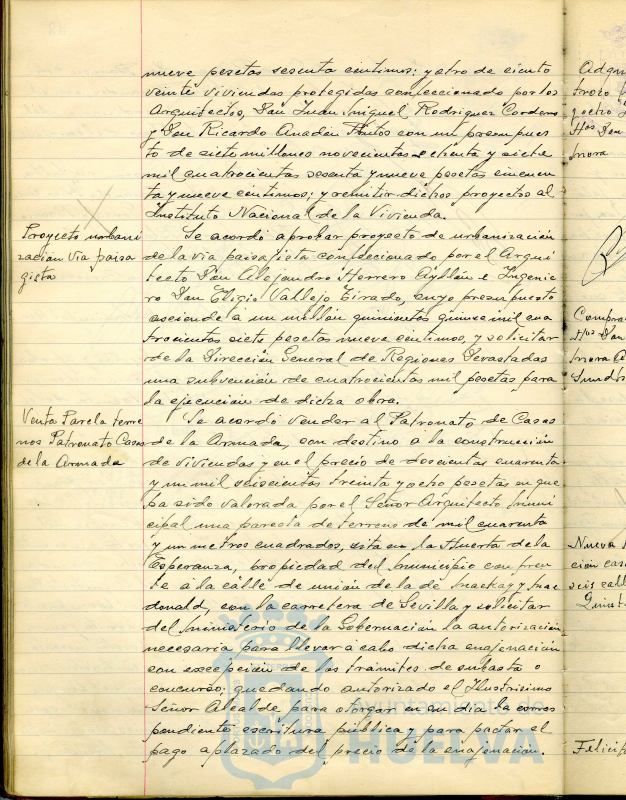 nueve pesetas sesenta centimos; y otro de ciento
veinte viviendas protegidas confeccionado por los
Arquitectos, Don Juan Miguel Rodriguez Cordero
y Don Ricardo Anadón Frutos con un presupues
to de siete millones novecientas ochenta y siete
mil cuatrocientas sesenta y nueve pesetas cincuen
ta y nueve centimos; y remitir dichos proyectos al
Instituto Nacional de la Vivienda.
Proyecto urbani
zación Via paisa
gista
Se acordó aprobar proyecto de urbanización
de la via paisajista confeccionado por el Arqui
tecto Don Alejandro Herrero Ayllón e Ingenie
ro Don Eligio Vallejo Tirado, cuyo presupuesto
asciende a un millón quinientas quince mil cua
trocientas siete pesetas nueve centimos, y solicitar
de la Dirección General de Regiones Devastadas
una subvención de cuatrocientas mil pesetas para
la ejecución de dicha obra.
Venta Parcela terre
nos Patronato Casas
de la Armada
Se acordó vender al Patronato de Casas
de la Armada, con destino a la construcción
de viviendas y en el precio de doscientas cuarenta
y un mil seiscientas treinta y ocho pesetas en que
ha sido valorada por el Señor Arquitecto Muni
cipal una parcela de terreno de mil cuarenta
y un metros cuadrados, sita en la Huerta de la
Esperanza, propiedad del Municipio con fren
te a la calle de unión de la de Mackay y Mac
donald, con la carretera de Sevilla y solicitar
del Ministerio de la Gobernación la autorización
necesaria para llevar a cabo dicha enajenación
con excepción de los trámites de subasta o
concurso; quedando autorizado el Ilustrisimo
Señor Alcalde para otorgar en su dia la corres
pondiente escritura pública y para pactar el
pago aplazado del precio de la enajenación.
HUELVA
trozo
y ocho
Hos Don
mora
Compra
Hos Don
mora
Nueva
ción casa
seis call
Quint
Felici